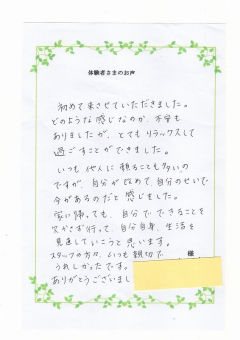 体験者さまのお声
初めて来させていただきました。
どのような感じなのか、不安も
ありましたが、とてもリラックスして
過ごすことができました。
いつも他人に頼ることも多いの
ですが、自分が改めて、自分のせいで
今があるのだと感じました。
家に帰っても、自分でできることを
欠かさず行って、自分自身、生活を
見直していこうと思います。
スタッフの方々、いつも親切で
うれしかったです。
ありがとうございまし
様